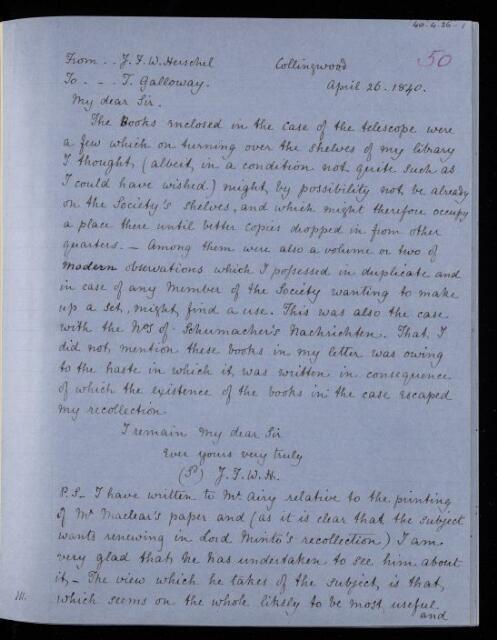 40.4.26-1
50
From .. J.F.W. Herschel Collingwood
To . _ . T. Galloway. April 26. 1840.
My dear Sir.
The Books enclosed in the case of the telescope were
a few which on turning over the shelves of my library
I thought, (albeit, in a condition not quite such as
I could have wished) might, by possibility not be already
on the Society's shelves, and which might therefore occupy
a place there until better copies dropped in from other
quarters. — Among them were also a volume or two of
modern observations which I possessed in duplicate and
in case of any Member of the Society wanting to make
up a set, might find a use. This was also the case
with the Nos of Schumacher's Nachrichten. That I
did not mention these books in my letter was owing
to the haste in which it was written in consequence
of which the existence of the books in the case escaped
my recollection
I remain my dear Sir
Ever yours very truly
(S) J.F.W.H.
P.S_ I have written to Mr Airy relative to the printing
of Mr Maclear's paper and (as it is clear that the subject
wants renewing in Lord Minto's recollection) I am
very glad that he has undertaken to see him about
it, _ The view which he takes of the subject, is that,
which seems on the whole likely to be most useful
and